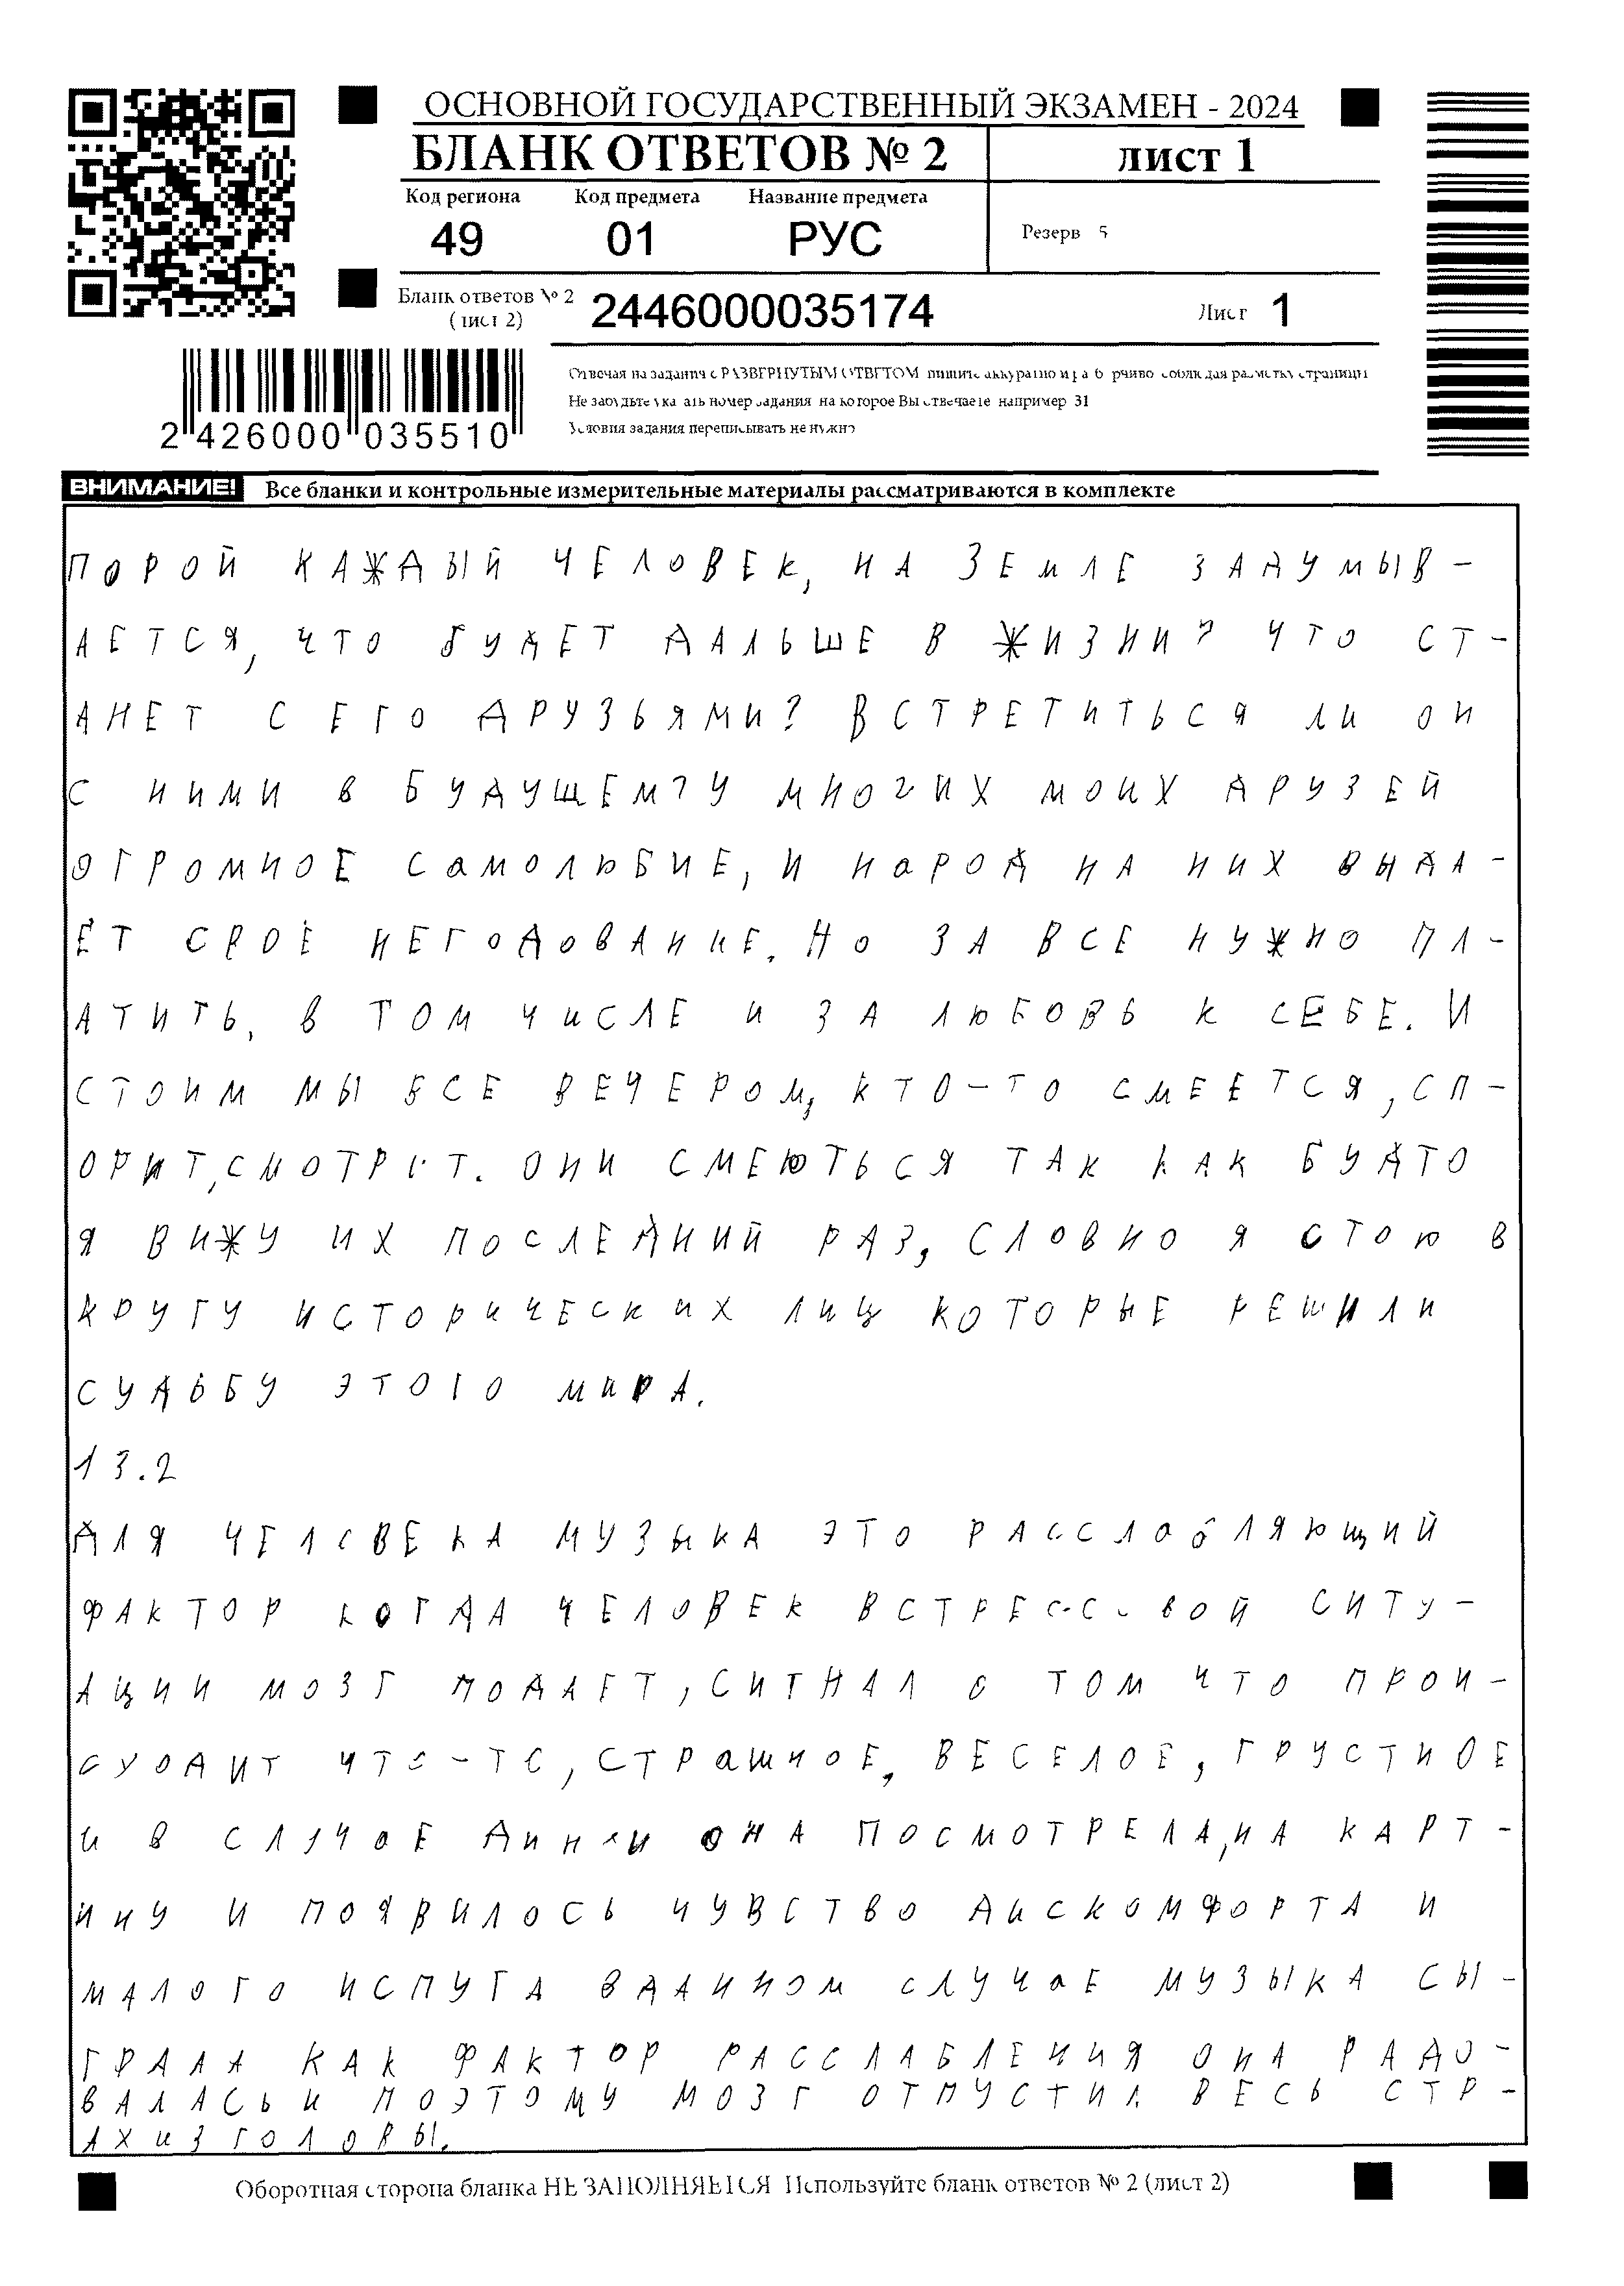 ОСНОВНОЙ ГОСУДАРСТВЕННЫЙ ЭКЗАМЕН - 2024
БЛАНК ОТВЕТОВ № 2 лист 1
Код региона Код предмета Название предмета
49 01 РУС Резерв 5
Бланк ответов № 2
(лист 2) 2446000035174 Лист 1
Отвечая на задания с РАЗВЕРНУТЫМ ОТВЕТОМ пишите аккуратно и разборчиво соблюдая разметку страницы
Не забудьте указать номер задания на которое Вы отвечаете например 31
Условия задания переписывать не нужно
2 426000 035510
ВНИМАНИЕ! Все бланки и контрольные измерительные материалы рассматриваются в комплекте
ПОРОЙ КАЖДЫЙ ЧЕЛОВЕК, НА ЗЕМЛЕ ЗАДУМЫВ-
АЕТСЯ, ЧТО БУДЕТ ДАЛЬШЕ В ЖИЗНИ? ЧТО СТ-
АНЕТ С ЕГО ДРУЗЬЯМИ? ВСТРЕТИТЬСЯ ЛИ ОН
С НИМИ В БУДУЩЕМ? У МНОГИХ МОИХ ДРУЗЕЙ
ОГРОМНОЕ САМОЛЮБИЕ, И НАРОД НА НИХ ВЫДА-
ЁТ СВОЁ НЕГОДОВАНИЕ. НО ЗА ВСЕ НУЖНО ПЛ-
АТИТЬ, В ТОМ ЧИСЛЕ И ЗА ЛЮБОВЬ К СЕБЕ. И
СТОИМ МЫ ВСЕ ВЕЧЕРОМ, КТО-ТО СМЕЕТСЯ, СП-
ОРИТ, СМОТРИТ. ОНИ СМЕЮТЬСЯ ТАК КАК БУДТО
Я ВИЖУ ИХ ПОСЛЕДНИЙ РАЗ, СЛОВНО Я СТОЮ В
КРУГУ ИСТОРИЧЕСКИХ ЛИЦ КОТОРЫЕ РЕШИЛИ
СУДЬБУ ЭТОГО МИРА.
13.2
ДЛЯ ЧЕЛОВЕКА МУЗЫКА ЭТО РАССЛОБЛЯЮЩИЙ
ФАКТОР КОГДА ЧЕЛОВЕК В СТРЕССОВОЙ СИТУ-
АЦИИ МОЗГ ПОДАЕТ, СИГНАЛ О ТОМ ЧТО ПРОИ-
СХОДИТ ЧТО-ТО, СТРАШНОЕ, ВЕСЕЛОЕ, ГРУСТНОЕ
И В СЛУЧАЕ ДИНКИ ОНА ПОСМОТРЕЛА, НА КАРТ-
ИНУ И ПОЯВИЛОСЬ ЧУВСТВО ДИСКОМФОРТА И
МАЛОГО ИСПУГА В ДАННОМ СЛУЧАЕ МУЗЫКА СЫ-
ГРАЛА КАК ФАКТОР РАССЛАБЛЕНИЯ ОНА РАДО-
ВАЛАСЬ И ПОЭТОМУ МОЗГ ОТПУСТИЛ ВЕСЬ СТР-
АХ ИЗ ГОЛОВЫ.
Оборотная сторона бланка НЕ ЗАПОЛНЯЕТСЯ Используйте бланк ответов № 2 (лист 2)